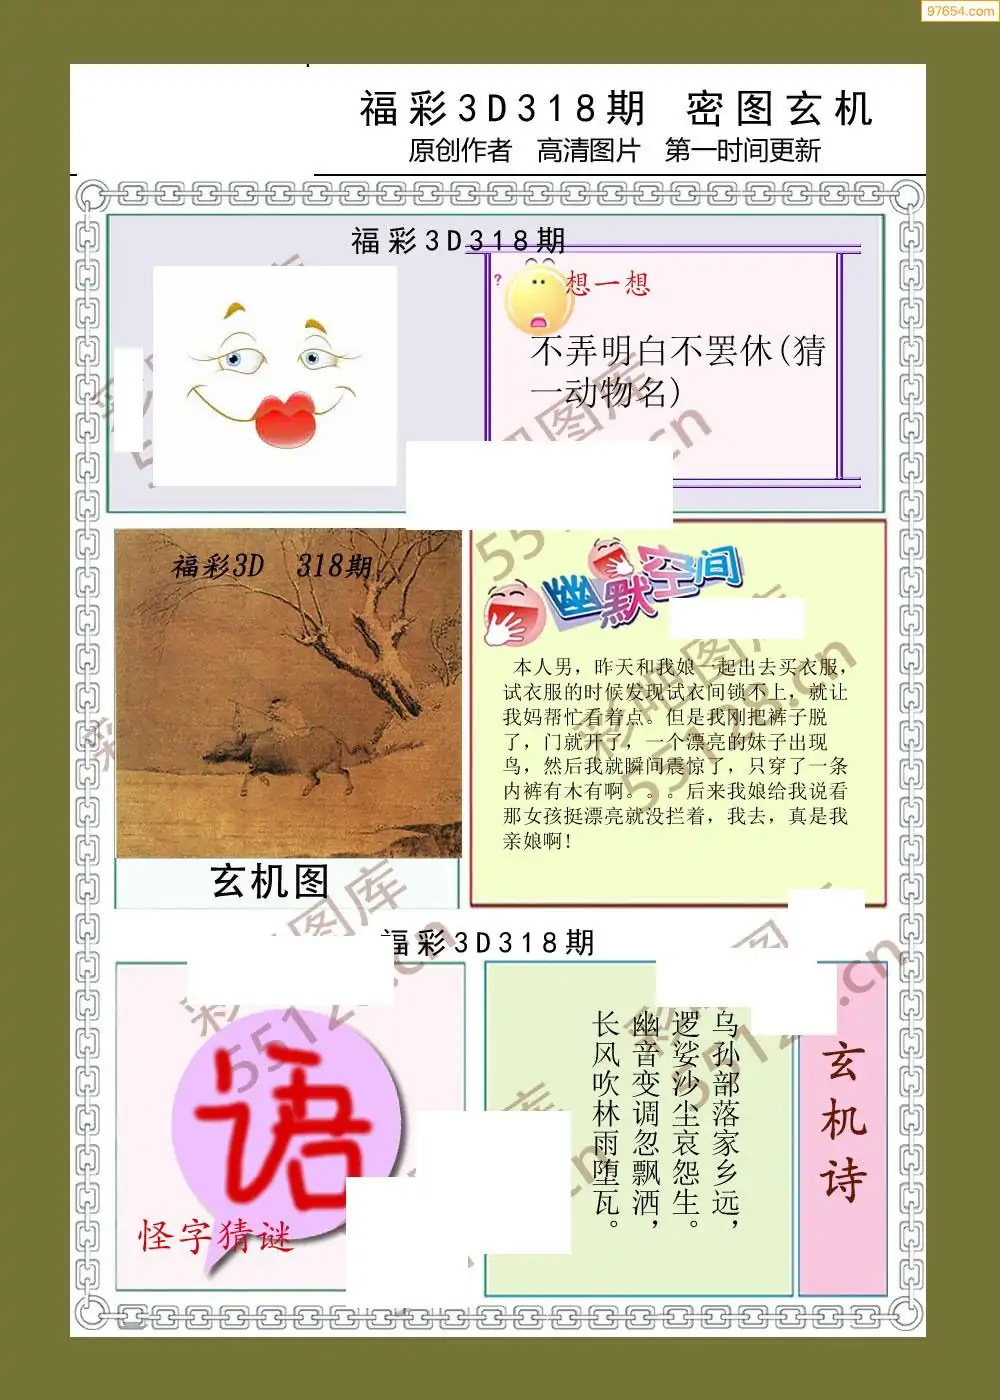 97654.com
福彩3D318期 密图玄机
原创作者 高清图片 第一时间更新
福彩3D318期
?
想一想
不弄明白不罢休(猜
一动物名)
福彩3D 318期
玄机图
幽默空间
本人男，昨天和我娘一起出去买衣服，
试衣服的时候发现试衣间锁不上，就让
我妈帮忙看着点。但是我刚把裤子脱
了，门就开了，一个漂亮的妹子出现
鸟，然后我就瞬间震惊了，只穿了一条
内裤有木有啊。。。后来我娘给我说看
那女孩挺漂亮就没拦着，我去，真是我
亲娘啊!
福彩3D318期
语
怪字猜谜
乌孙部落家乡远，
逻娑沙尘哀怨生。
幽音变调忽飘洒，
长风吹林雨堕瓦。
玄机诗
彩吧图库
55128.cn